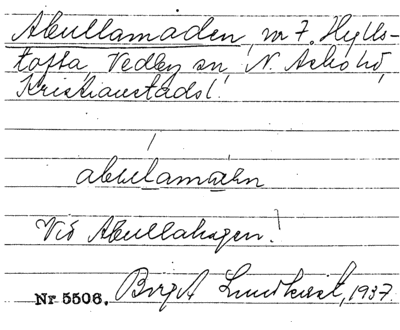 Abullamaden, nr 7, Hylls-
tofta Vedby sn, N. Åsbo hd,
Kristianstads l.
abulamaðn
Vid Abullahagen!
Nr 5506. Birgit Lundkvist, 1937.